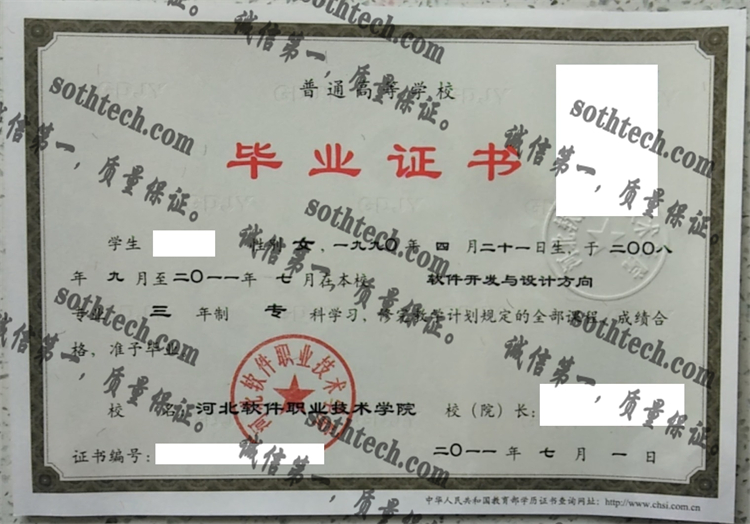 普通高等学校
毕业证书
学生 性别 女，一九九〇年 四 月二十一日生，于 二〇〇八
年 九 月至二〇一一年 七 月在本校 软件开发与设计方向
专业 三 年制 专 科学习，修完教学计划规定的全部课程，成绩合
格，准予毕业。
校 名：河北软件职业技术学院 校（院）长：
证书编号： 二〇一一 年 七 月 一 日
中华人民共和国教育部学历证书查询网址：http://www.chsi.com.cn
河北软件职业技术学院
sothtech.com
诚信第一，质量保证。
sothtech.com
诚信第一，质量保证。
sothtech.com
诚信第一，质量保证。
sothtech.com
诚信第一，质量保证。
sothtech.com
诚信第一，质量保证。
sothtech.com
诚信第一，质量保证。
sothtech.com
诚信第一，质量保证。